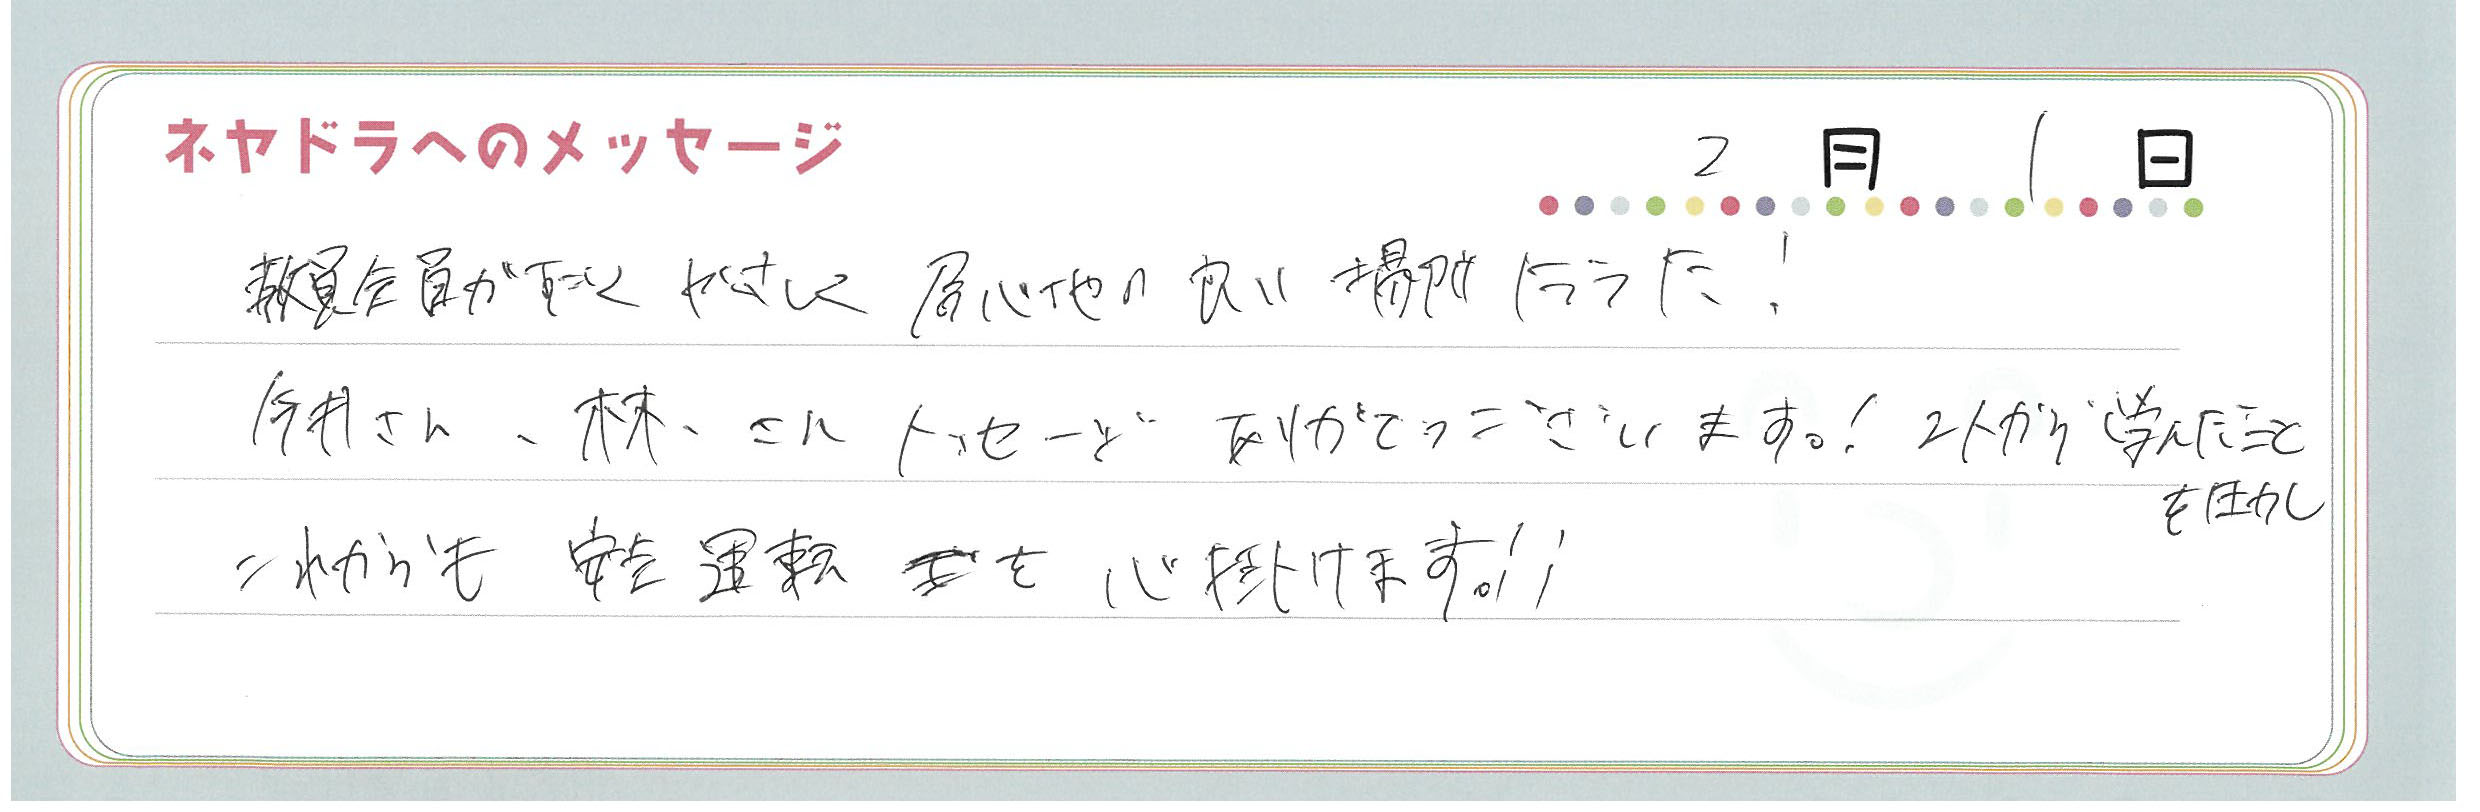 ネヤドラへのメッセージ
2月1日
教員全員がすごくやさしく居心地の良い場所だった!
今井さん、林さんメッセージありがとうございます。! 2人から学んだこと
を生かし
これからも安全運転を心掛けます。!!